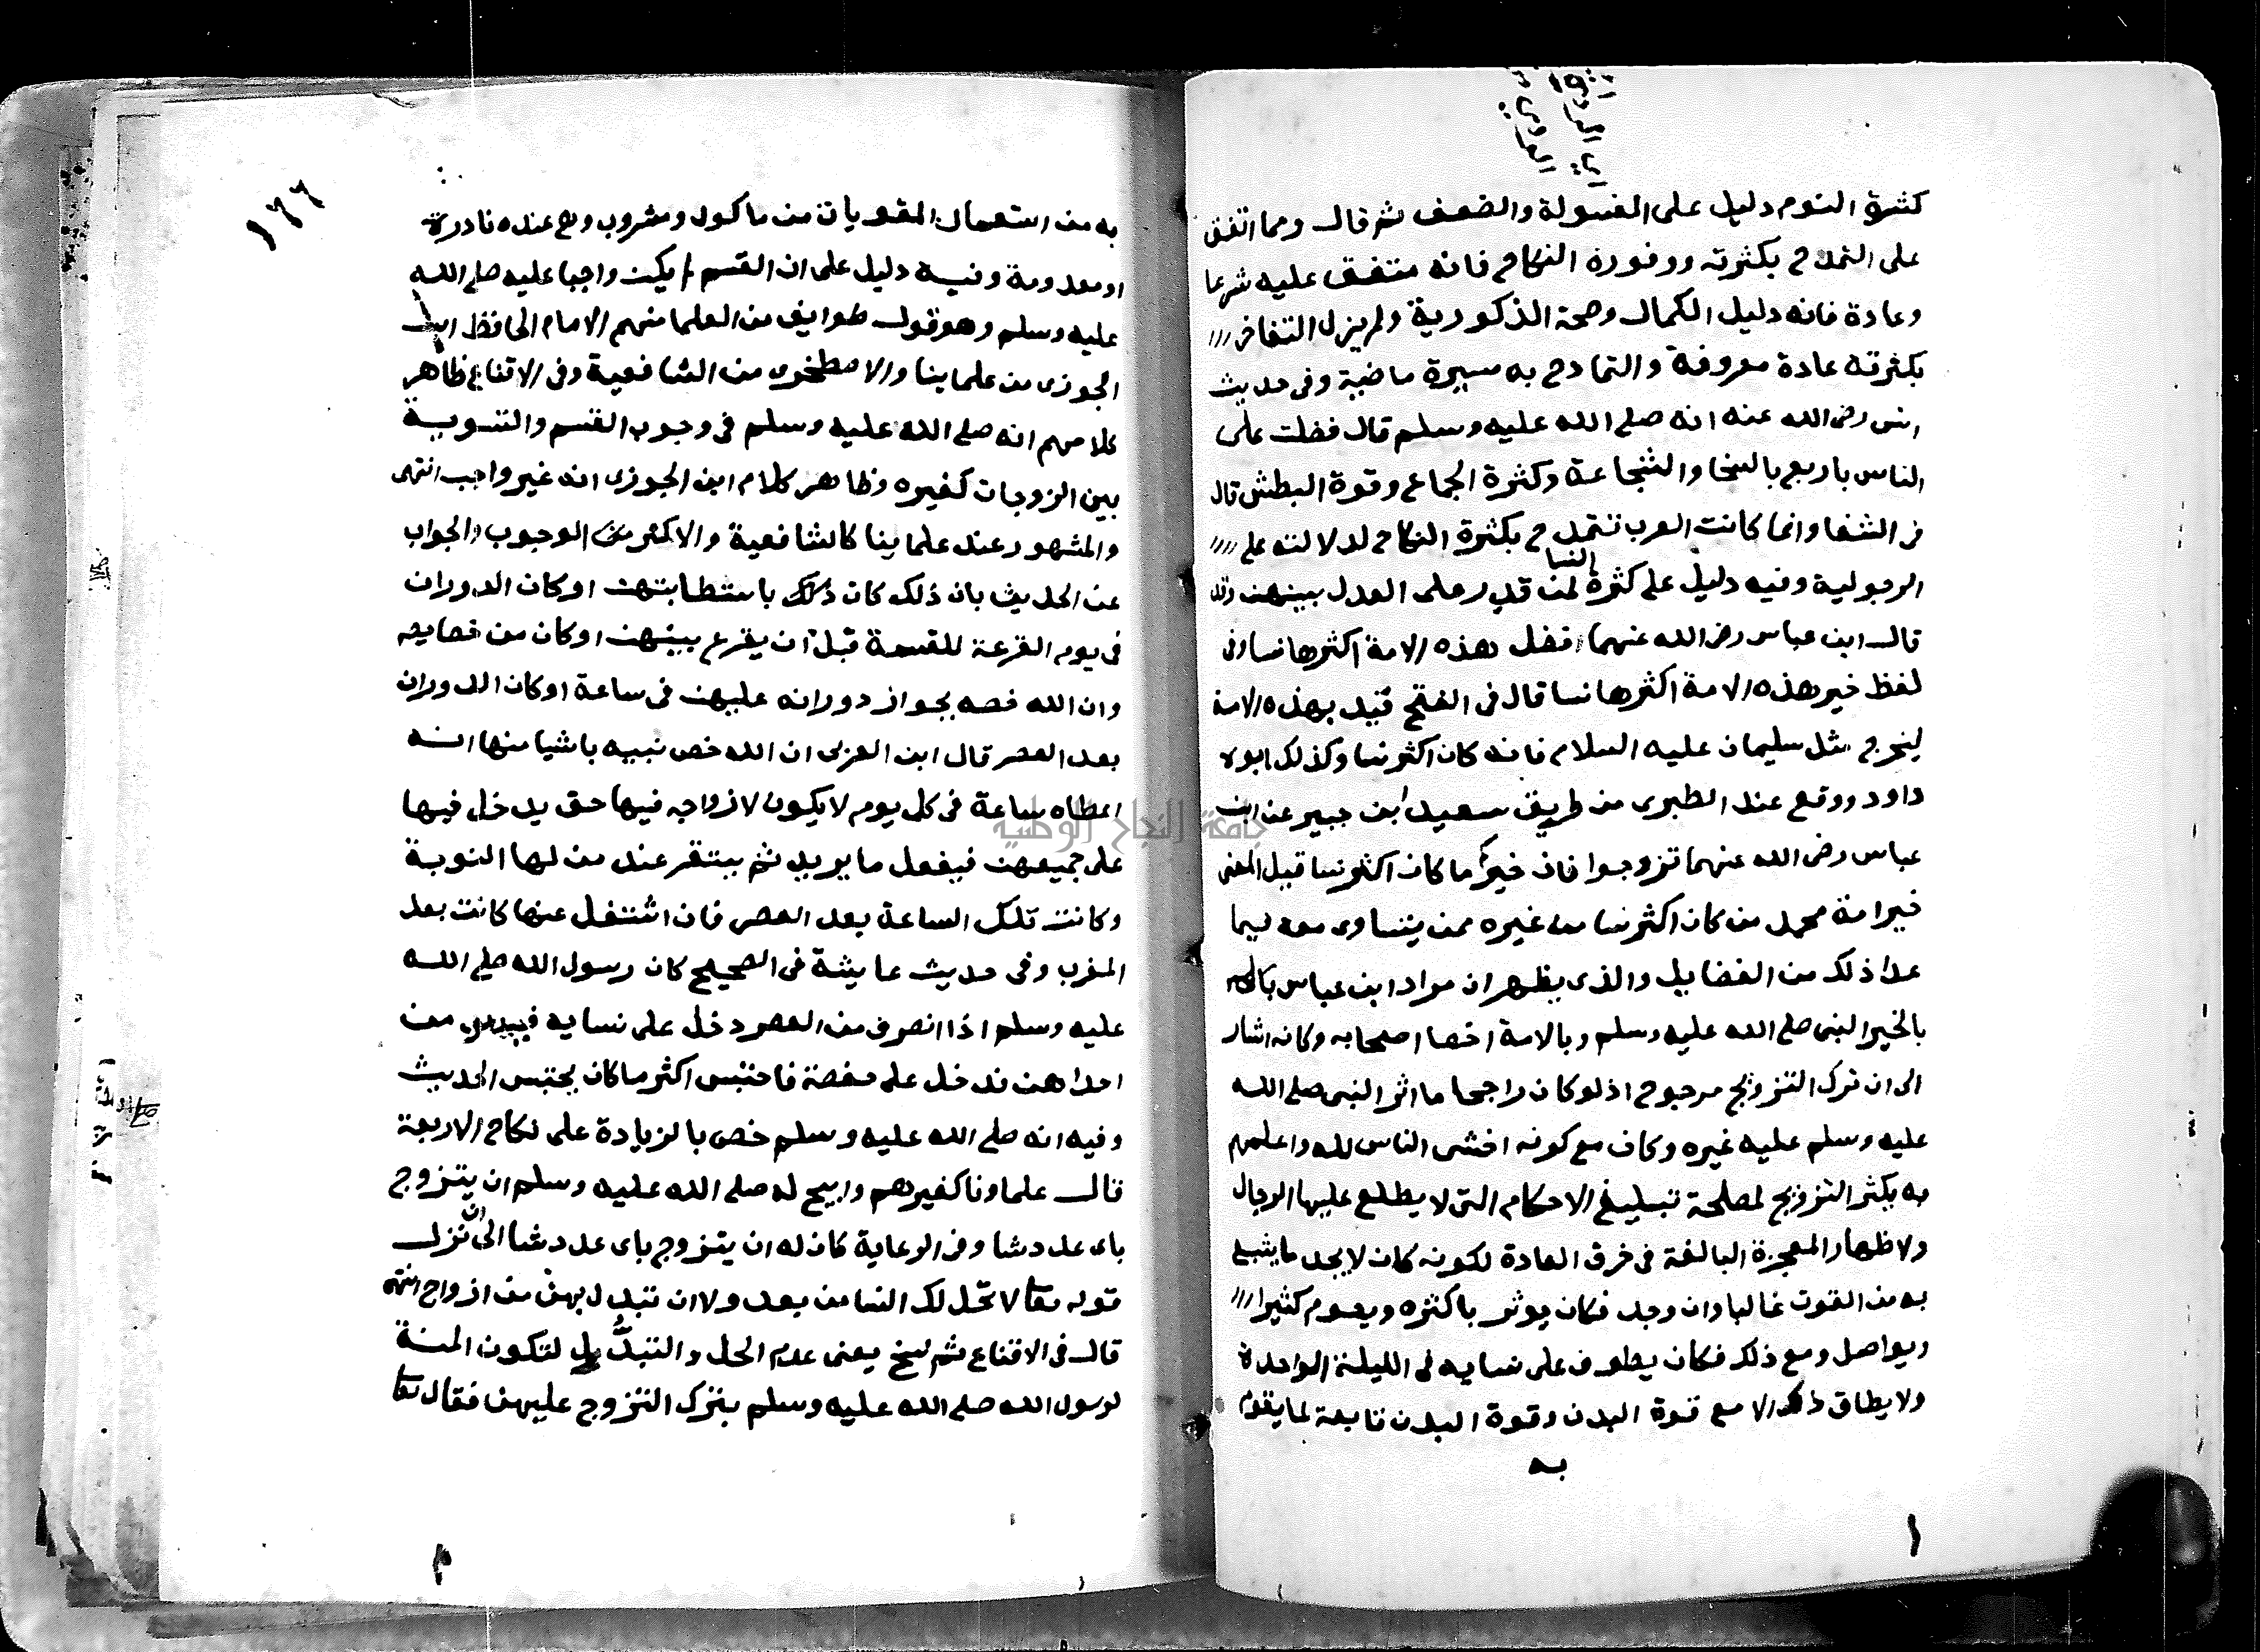 كثرة النوم دليل على الفسولة والضعف ثم قال ومما اتفق
على التمدح بكثرته ووفوره النكاح فانه متفق عليه شرعا
وعادة فانه دليل الكمال وصحة الذكورية ولم يزل التفاخر
بكثرته عادة معروفة والتمادح به سيرة ماضية وفى حديث
انس رضى الله عنه انه صلى الله عليه وسلم قال فضلت على
الناس باربع بالسخا والشجاعة وكثرة الجماع وقوة البطش قال
فى الشفا وانما كانت العرب تتمدح بكثرة النكاح لدلالته على
الرجولية وفيه دليل على كثرة النسا لمن قدر على العدل بينهن وقد
قال ابن عباس رضى الله عنهما افضل هذه الامة اكثرها نسا وفى
لفظ خير هذه الامة اكثرها نسا قال فى الفتح قيد بهذه الامة
ليخرج مثل سليمان عليه السلام فانه كان اكثر نسا وكذلك ابوه
داود ووقع عند الطبرى من طريق سعيد ابن جبير عن ابن
عباس رضى الله عنهما تزوجوا فان خيركم ما كان اكثر نسا قيل المعنى
خير امة محمد من كان اكثر نسا من غيره ممن يتساوى معه فيما
عدا ذلك من الفضايل والذى يظهر ان مراد ابن عباس
بالخير النبى صلى الله عليه وسلم وبالامة اخصا اصحابه وكانه اشار
الى ان ترك التزويج مرجوح اذ لو كان راجحا ما اثر النبى صلى الله
عليه وسلم عليه غيره وكان مع كونه اخشى الناس لله واعلمهم
به يكثر التزويج لمصلحة تبليغ الاحكام التى لا يطلع عليها الرجال
ولاظهار المعجزة البالغة فى خرق العادة لكونه كان لا يجد ما يشبع
به من القوت غالبا وان وجد فكان يوثر باكثره ويصوم كثيرا
ويواصل ومع ذلك فكان يطوف على نسايه فى الليلة الواحدة
ولا يطاق ذلك الا مع قوة البدن وقوة البدن تابعة لما يقوم
به
١
١٦٦
به من استعمال المقويات من ماكول ومشروب وهى عنده نادرة
او معدومة وفيه دليل على ان القسم لم يكن واجبا عليه صلى الله
عليه وسلم وهو قول طوايف من العلما منهم الامام الحافظ ابن
الجوزى من علماينا والاصطخرى من الشافعية وفى الاقناع ظاهر
كلامهم انه صلى الله عليه وسلم فى وجوب القسم والتسوية
بين الزوجات كغيره وظاهر كلام ابن الجوزى انه غير واجب انتهى
والمشهور عند علماينا كالشافعية والاكثرين الوجوب والجواب
عن الحديث بان ذلك كان ذلك باستطابتهن او كان الدوران
فى يوم القرعة للقسمة قبل ان يقرع بينهن او كان من خصايصه
وان الله خصه بجواز دورانه عليهن فى ساعة او كان الدوران
بعد العصر قال ابن العزبى ان الله خص نبيه باشيا منها انه
اعطاه ساعة فى كل يوم لا يكون لازواجه فيها حق يدخل فيها
على جميعهن فيفعل ما يريد ثم يستقر عند من لها النوبة
وكانت تلك الساعة بعد العصر فان اشتغل عنها كانت بعد
المغرب وفى حديث عايشة فى الصحيح كان رسول الله صلى الله
عليه وسلم اذا انصرف من العصر دخل على نسايه فيدنو من
احداهن فدخل على حفصة فاحتبس اكثر ما كان يحتبس الحديث
وفيه انه صلى الله عليه وسلم خص بالزيادة على نكاح الاربعة
قال علماونا كغيرهم وابيح له صلى الله عليه وسلم ان يتزوج
باى عدد شا وفى الرعاية كان له ان يتزوج باى عدد شا الى ان نزل
قوله تعا لا تحل لك النسا من بعد ولا ان تبدل بهن من ازواج انتهى
قال فى الاقناع ثم نسخ يعنى عدم الحل والتبدل لتكون المنة
لرسول الله صلى الله عليه وسلم بترك التزوج عليهن فقال تعا
٢
جامعة النجاح الوطنية